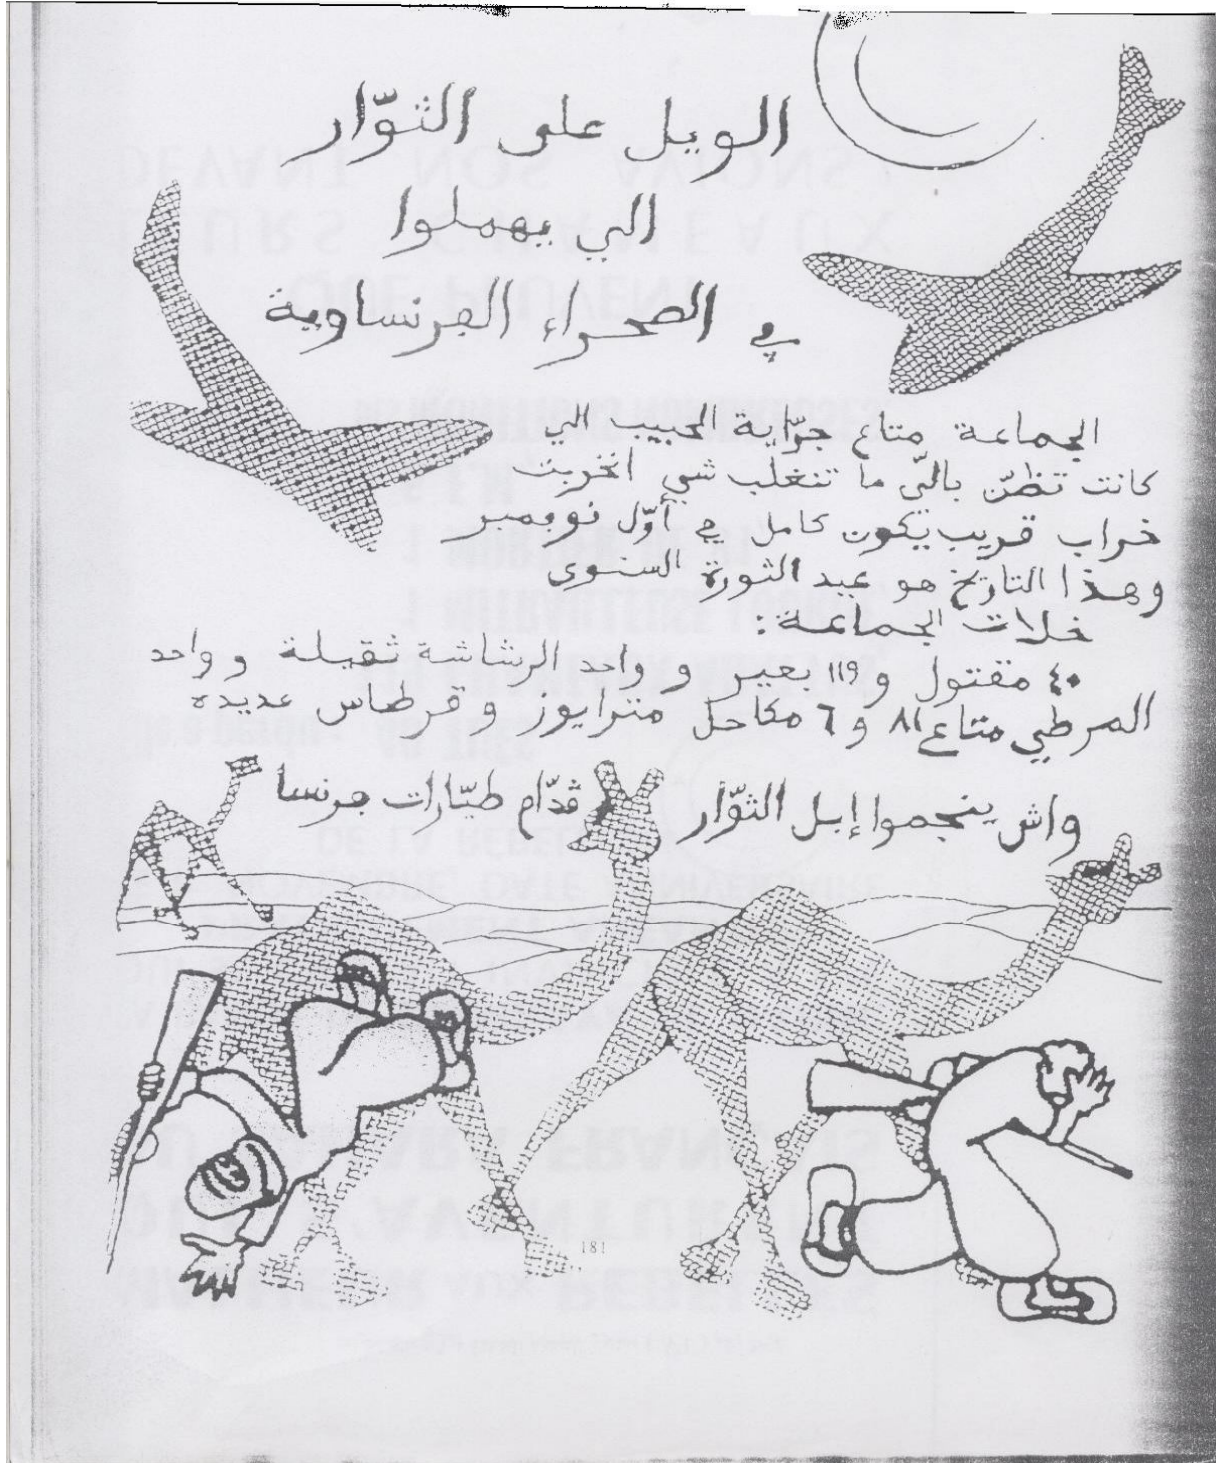 الويل على الثوّار
الي يهملوا
في الصحراء الفرنساوية
الجماعة متاع جرّاية الحبيب الي
كانت تظنّ باليّ ما تنغلب شي انخربت
خراب قريب يكون كامل في أوّل نوبمبر
وهذا التاريخ هو عيد الثورة السنوي
خلات الجماعة:
٤٠ مقتول و 119 بعير و واحد الرشاشة ثقيلة و واحد
المرطي متاع ٨١ و 6 مكاحل مترايوز و قرطاس عديدة
واش ينجموا إبل الثوّار قدّام طيّارات فرنسا
181